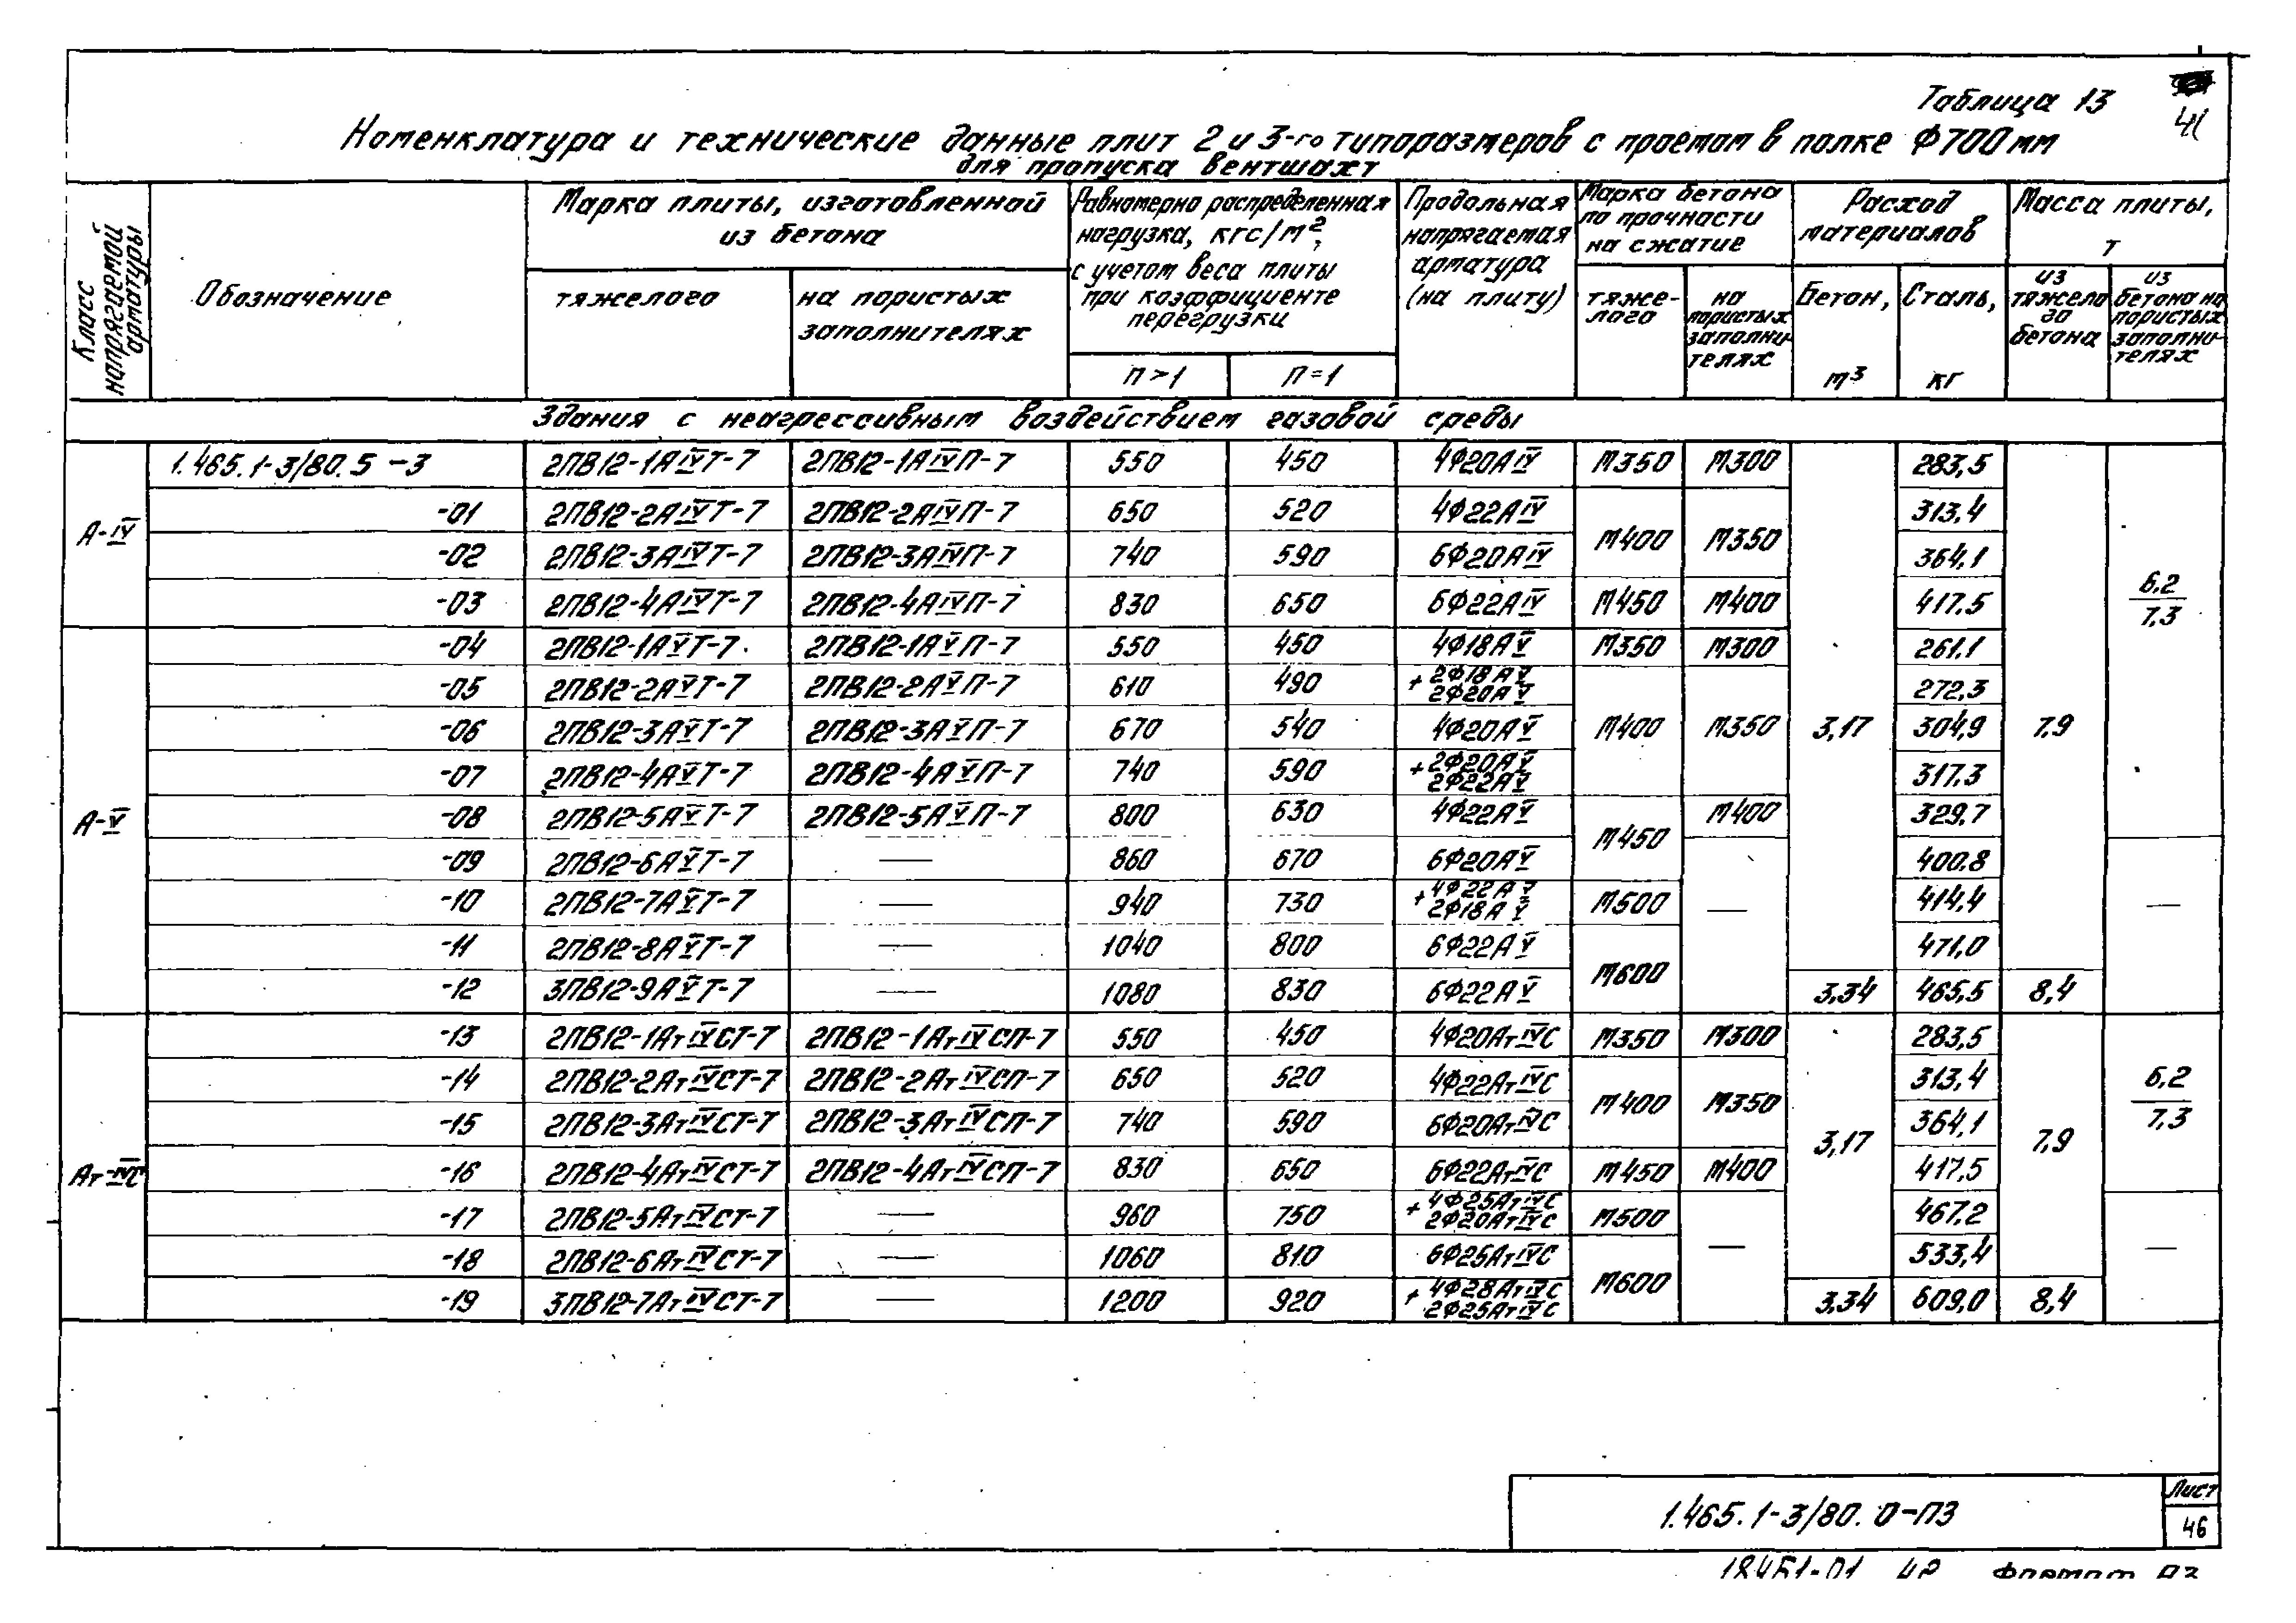 Таблица 13
41
Номенклатура и технические данные плит 2 и 3-го типоразмеров с проемом в полке Ф700мм
для пропуска вентшахт
Класс напрягаемой арматуры
Обозначение
Марка плиты, изготовленной из бетона
тяжелого
на пористых заполнителях
Равномерно распределенная нагрузка, кгс/м², с учетом веса плиты при коэффициенте перегрузки
n>1
n=1
Продольная напрягаемая арматура (на плиту)
Марка бетона по прочности на сжатие
тяже-лого
на пористых заполни-телях
Расход материалов
Бетон, м³
Сталь, кг
Масса плиты, т
из тяжело го бетона
из бетона на пористых заполни-телях
Здания с неагрессивным воздействием газовой среды
А-IV
1.465.1-3/80.5 -3 2ПВ12-1АIVТ-7 2ПВ12-1АIVП-7 550 450 4Ф20АIV М350 М300 283,5
-01 2ПВ12-2АIVТ-7 2ПВ12-2АIVП-7 650 520 4Ф22АIV М400 М350 313,4
-02 2ПВ12-3АIVТ-7 2ПВ12-3АIVП-7 740 590 6Ф20АIV 364,1
-03 2ПВ12-4АIVТ-7 2ПВ12-4АIVП-7 830 650 6Ф22АIV М450 М400 417.5
6,2
7,3
А-V
-04 2ПВ12-1АVТ-7 2ПВ12-1АVП-7 550 450 4Ф18АV М350 М300 261.1
-05 2ПВ12-2АVТ-7 2ПВ12-2АVП-7 610 490 +2Ф18АV 2Ф20АV 272,3
-06 2ПВ12-3АVТ-7 2ПВ12-3АVП-7 670 540 4Ф20АV М400 М350 3,17 304,9 7,9
-07 2ПВ12-4АVТ-7 2ПВ12-4АVП-7 740 590 +2Ф20АV 2Ф22АV 317.3
-08 2ПВ12-5АVТ-7 2ПВ12-5АVП-7 800 630 4Ф22АV М450 М400 329.7
-09 2ПВ12-6АVТ-7 — 860 670 6Ф20АV 400.8
-10 2ПВ12-7АVТ-7 — 940 730 +4Ф22АV 2Ф18АV М500 — 414,4 —
-11 2ПВ12-8АVТ-7 — 1040 800 6Ф22АV М600 471,0
-12 3ПВ12-9АVТ-7 — 1080 830 6Ф22АV 3,34 465,5 8,4
Ат-IVС
-13 2ПВ12-1АтIVСТ-7 2ПВ12-1АтIVСП-7 550 450 4Ф20АтIVС М350 М300 283,5
-14 2ПВ12-2АтIVСТ-7 2ПВ12-2АтIVСП-7 650 520 4Ф22АтIVС М400 М350 313,4 6,2
-15 2ПВ12-3АтIVСТ-7 2ПВ12-3АтIVСП-7 740 590 6Ф20АтIVС 3,17 364,1 7,9 7,3
-16 2ПВ12-4АтIVСТ-7 2ПВ12-4АтIVСП-7 830 650 6Ф22АтIVС М450 М400 417,5
-17 2ПВ12-5АтIVСТ-7 — 960 750 +4Ф25АтIVС 2Ф20АтIVС М500 467,2
-18 2ПВ12-6АтIVСТ-7 — 1060 810 6Ф25АтIVС М600 — 533,4 —
-19 3ПВ12-7АтIVСТ-7 — 1200 920 +4Ф28АтIVС 2Ф25АтIVС 3,34 609,0 8,4
1.465.1-3/80.0-ПЗ
Лист
46
18451-01 42 Формат А3